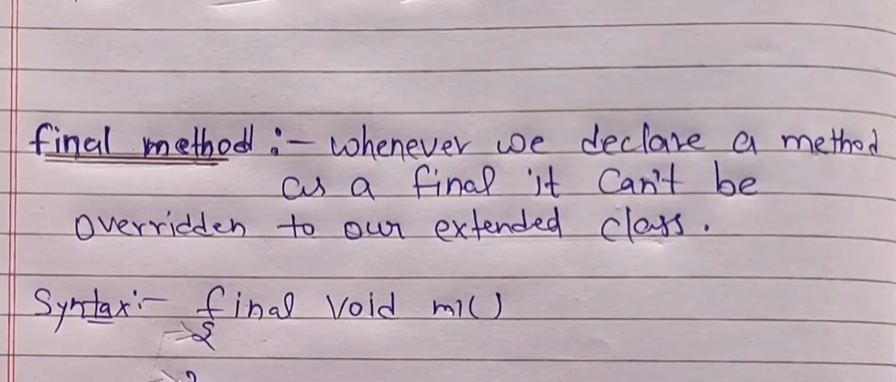 final method :- whenever we declare a method
as a final it can't be
overridden to our extended class.
Syntax:- final void m1()
{